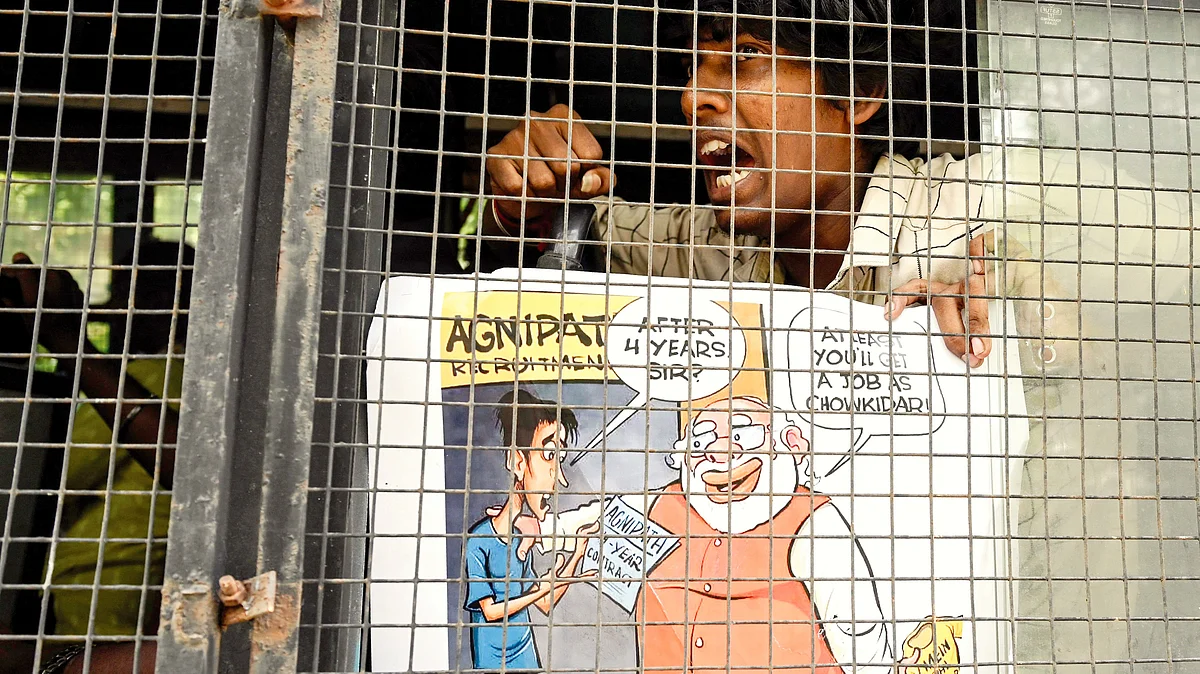 AGNIPAT
RECRUITMEN
AFTER
4 YEARS,
SIR?
AT LEAST
YOU'LL GET
A JOB AS
CHOWKIDAR!
AGNIPATH
4-YEAR
CONTRACT
MEIN